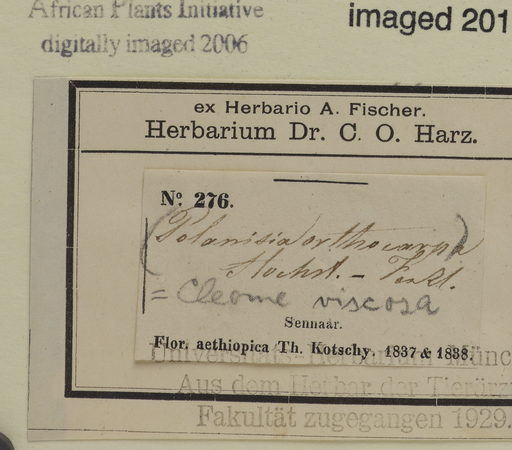 African Plants Initiative
digitally imaged 2006
imaged 201
ex Herbario A. Fischer.
Herbarium Dr. C. O. Harz.
No. 276.
(Polanisia orthocarpa)
Hochst. –
= Cleome viscosa
Sennaar.
Flor. aethiopica Th. Kotschy. 1837 & 1838.
Universitäts-Herbarium Münc
Aus dem Herbar der Tierärz
Fakultät zugegangen 1929.